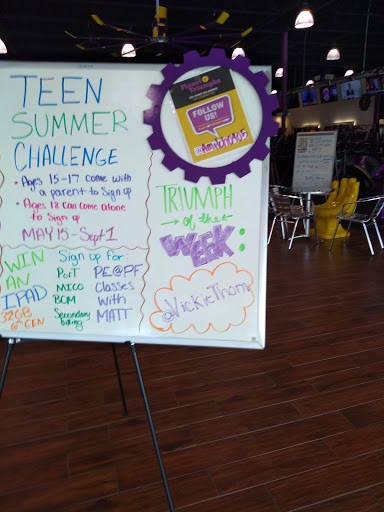 TEEN
SUMMER
CHALLENGE
• Ages 15-17 come with
a parent to Sign up
• Ages 18 Can come alone
to Sign up
MAY 15 - Sept 1
WIN
AN
IPAD
32GB
6th GEN
Sign up for:
PorT
MICO
BCM
Secondary
billing
PE@PF
Classes
with
MATT
planet fitness
FOLLOW
US!
TRIUMPH
of the
WEEK:
@VickieThorn